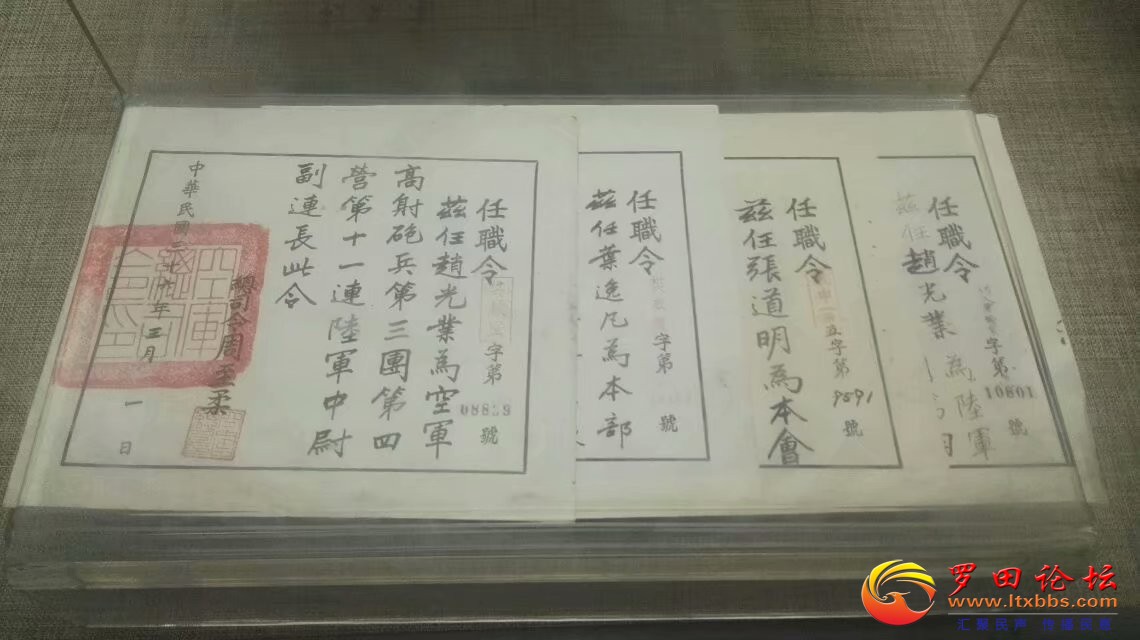 任職令
字第
號
茲任趙光業為空軍
高射砲兵第三團第四
營第十一連陸軍中尉
副連長此令
總司令周至柔
中華民國三十九年三月一日
任職令
字第
號
茲任葉逸凡為本部
任職令
五字第9591號
茲任張道明為本會
任職令
字第10801號
茲任趙光業為陸軍
罗田论坛
www.ltxbbs.com